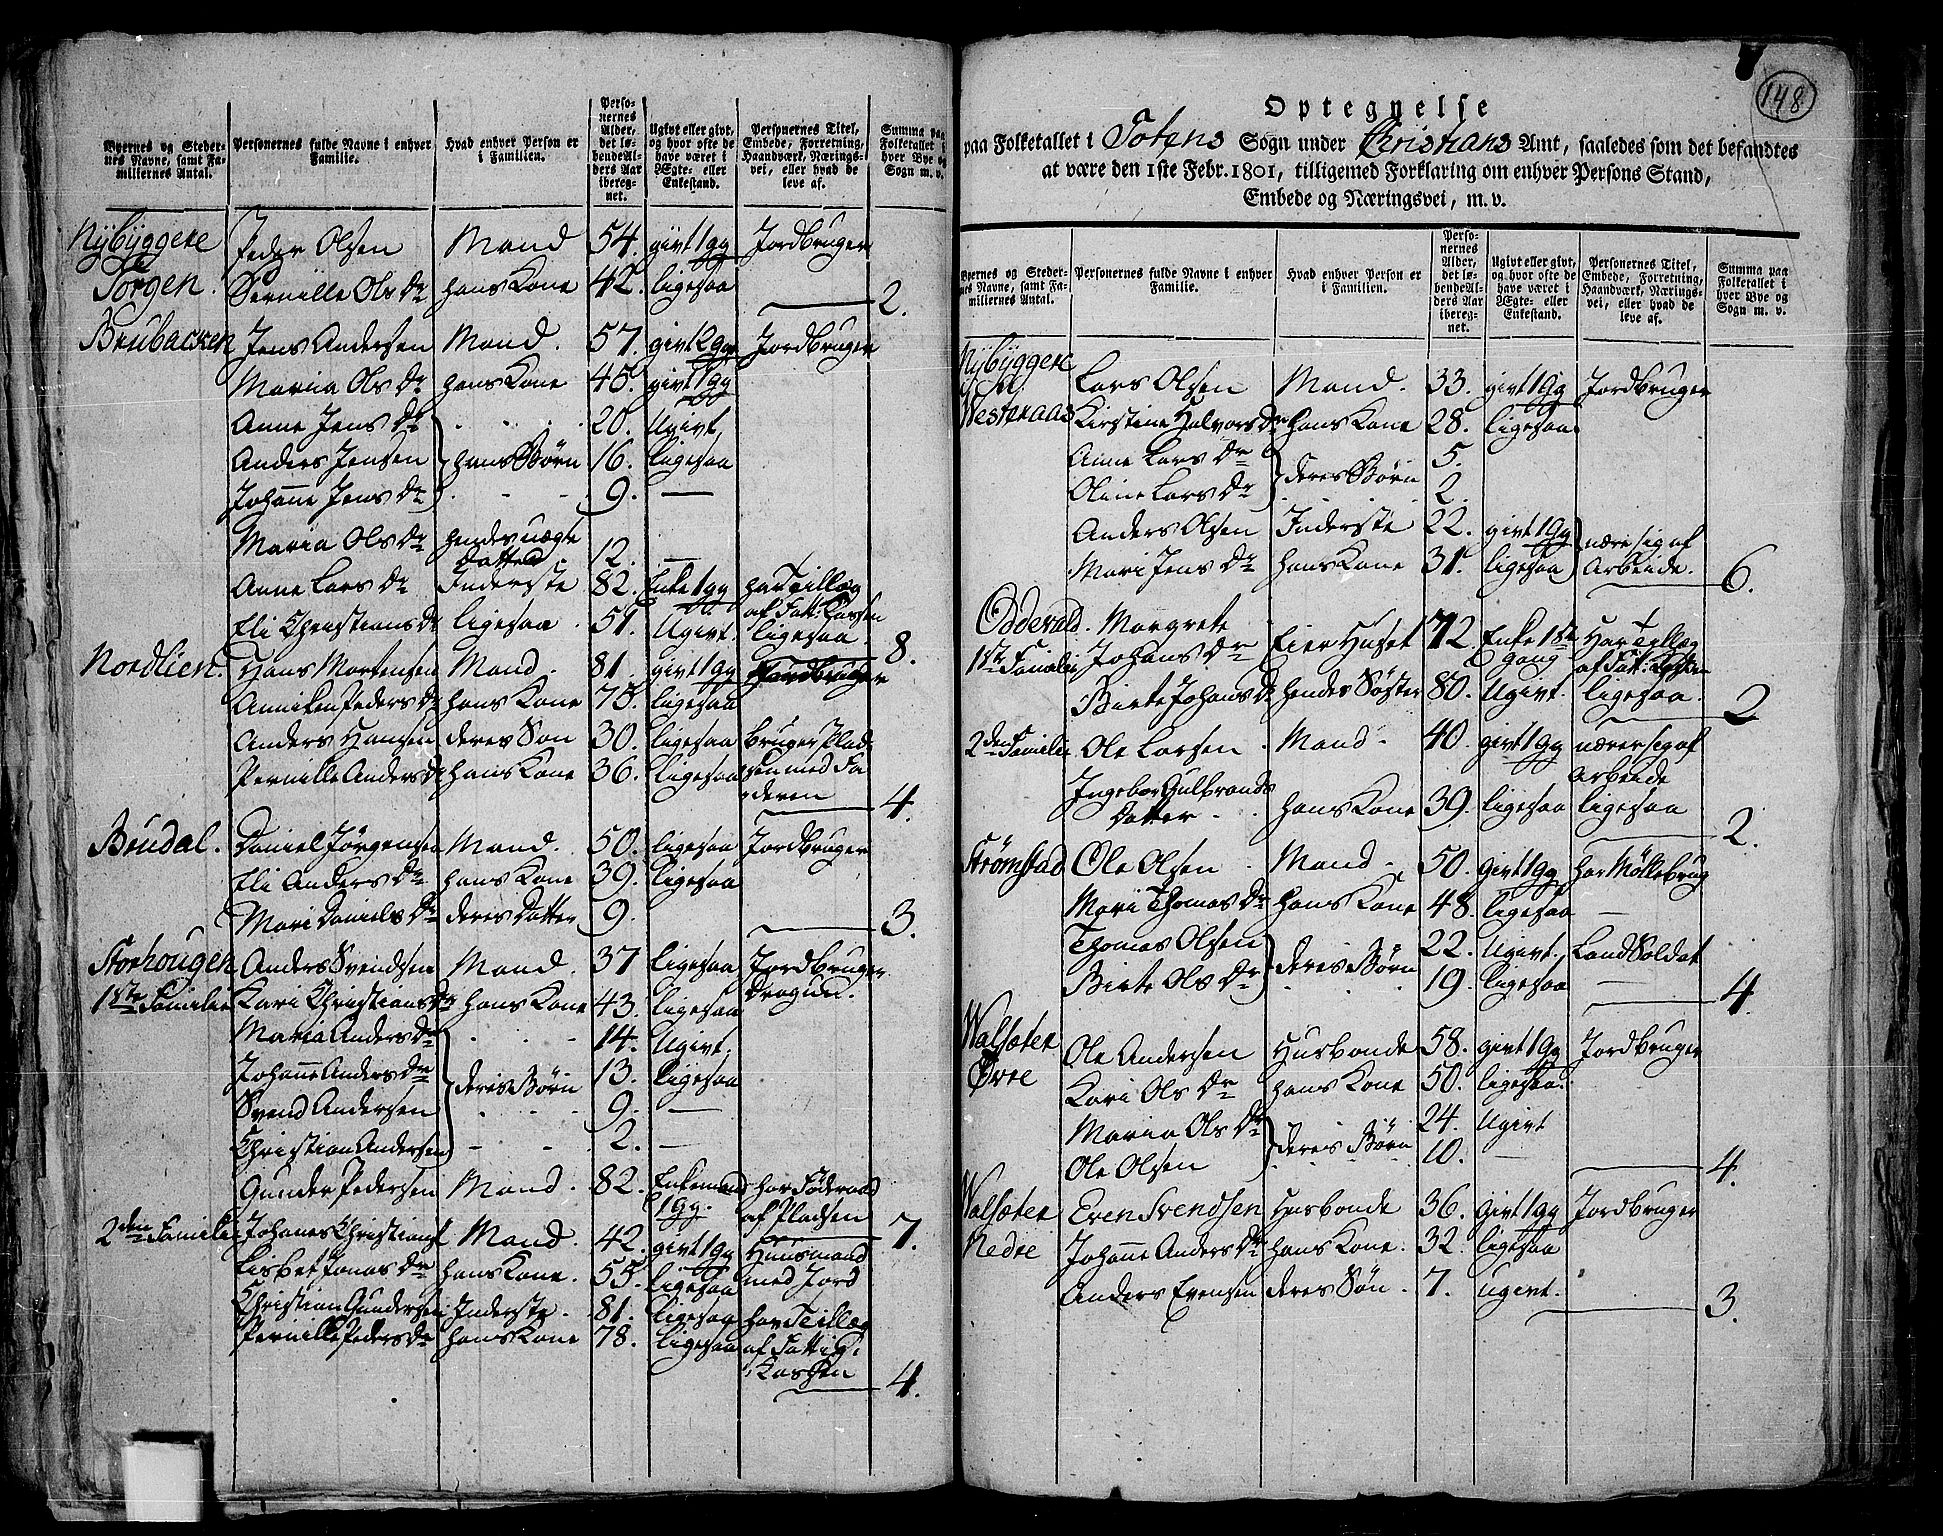 Byernes og Stedernes Navne, samt Familiernes Antal.
Personernes fulde Navne i enhver Familie.
Hvad enhver Person er i Familien.
Personernes Alder, det løbende Alders Aar iberegnet.
Ugivt eller givt, og hvor ofte de have været i Ægte- eller Enkestand.
Personernes Titel, Embede, Forretning, Haandværk, Næringsvei, eller hvad de leve af.
Summa paa Folketallet i hver Bye og Sogn m. v.
Nÿbÿggere
Peder Olsen Mand 54. givt 1 Gg Jordbruger
Torgen. Pernille Ols Dr hans Kone 42. ligesaa 2.
Brubacken Jens Andersen Mand. 57. givt 2 Gg Jordbruger
Maria Ols Dr hans Kone 45. givt 1 Gg
Anne Jens Dr 20. Ugivt
Anders Jensen hans Børn 16. ligesaa
Johanne Jens Dr 9. —
Maria Ols Dr hendes uægte Datter 12. —
Anne Lars Dr Inderste 82. Enke 1 Gg har Tillæg
Eli Christians Dr ligesaa 51. Ugivt. ligesaa 8.
af Fatt: Kassen
Nordlien. Hans Mortensen Mand. 81. givt 1 Gg Jordbruger
Anniken Peders Dr hans Kone 75. ligesaa
Anders Hansen deres Søn 30. ligesaa bruger Plad-
Pernille Anders Dr hans Kone 36. ligesaa sen med Fa-
deren 4.
Brudal. Daniel Jørgensen Mand. 50. ligesaa Jordbruger
Eli Anders Dr hans Kone 39. ligesaa
Mari Daniels Dr deres Datter 9. 3.
Storhougen Anders Svendsen Mand. 37 ligesaa Jordbruger
1ste Familie Kari Christians Dr hans Kone 43. ligesaa Dragun.
Maria Anders Dr 14. Ugivt.
Johanne Anders Dr deres Børn 13. ligesaa
Svend Andersen 9. —
Christian Andersen 2. —
Gunder Pedersen Mand. 82. Enkemand har Føderaad
1 Gg. af Pladsen 7.
2den Familie Johanes Christians. Mand. 42. givt 1 Gg Huusmand
Lisbet Jonas Dr hans Kone. 55. ligesaa med Jord
Christian Gundersen Inderste. 81. ligesaa har Tillæg
Pernille Peders Dr hans Kone 78. ligesaa af Fattig
Kassen 4.
148
Optegnelse
paa Folketallet i Totens Sogn under Christians Amt, saaledes som det befandtes
at være den 1ste Febr. 1801, tilligemed Forklaring om enhver Persons Stand,
Embede og Næringsvei, m. v.
Byernes og Stedernes Navne, samt Familiernes Antal.
Personernes fulde Navne i enhver Familie.
Hvad enhver Person er i Familien.
Personernes Alder, det løbende Alders Aar iberegnet.
Ugivt eller givt, og hvor ofte de have været i Ægte- eller Enkestand.
Personernes Titel, Embede, Forretning, Haandværk, Næringsvei, eller hvad de leve af.
Summa paa Folketallet i hver Bye og Sogn m. v.
Nÿbÿggere
Lars Olsen Mand. 33. givt 1 Gg Jordbruger
Westeraas Kirstine Halvors Dr hans Kone 28. ligesaa
Anne Lars Dr deres Børn 5.
Oline Lars Dr 2.
Anders Olsen Inderste 22. givt 1 Gg nære sig af
Mari Jens Dr hans Kone 31. ligesaa Arbeide. 6.
Odderald. Margrete
1ste Familie Johans Dr Eier Huset 72 Enke 1ste Gang Har Tillæg af Fatt: Kassen
Birte Johans Dr hendes Søster 80. Ugivt. ligesaa. 2
2den Familie Ole Larsen Mand 40. givt 1 Gg nærer sig af
Arbeide
Ingebor Gulbrands
Datter hans Kone 39. ligesaa ligesaa 2.
Strømstad Ole Olsen Mand 50. givt 1 Gg har Møllebrug
Mari Thomas Dr hans Kone 48. ligesaa —
Thomas Olsen deres Børn 22. Ugivt. Land Soldat
Birte Ols Dr 19. ligesaa — 4.
Walsæter Ole Andersen Husbonde 58. givt 1 Gg Jordbruger
Øvre Kari Ols Dr hans Kone 50. ligesaa
Maria Ols Dr deres Børn 24. Ugivt
Ole Olsen 10. — 4.
Walsæter Even Svendsen Husbonde 36. givt 1 Gg Jordbruger
Nedre Johanne Anders Dr hans Kone. 32. ligesaa
Anders Evensen deres Søn. 7. ugivt. 3.